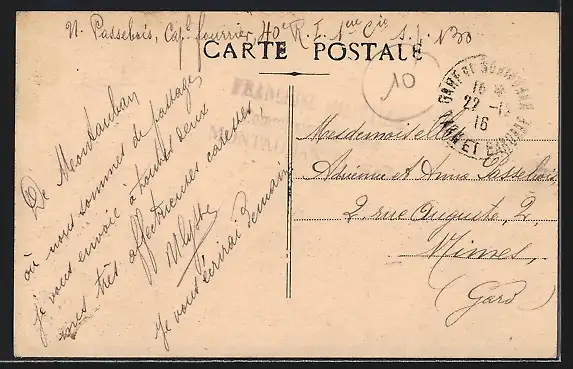 N. Passebois, Cap. fourrier, 40e R. I. Cie S. P. No
CARTE POSTALE
10
GARE DE MONTAUBAN
22 -12
16
TARN ET GARONNE
FRANCHISE
MONTAUBAN
De Montauban
où nous sommes de passage,
je vous envoie à toutes deux
mes très affectueuses caresses.
Ulysse
je vous écrirai demain
Mesdemoiselles
Adrienne et Anna Passebois
2, rue Auguste, 2,
Nimes,
(Gard)